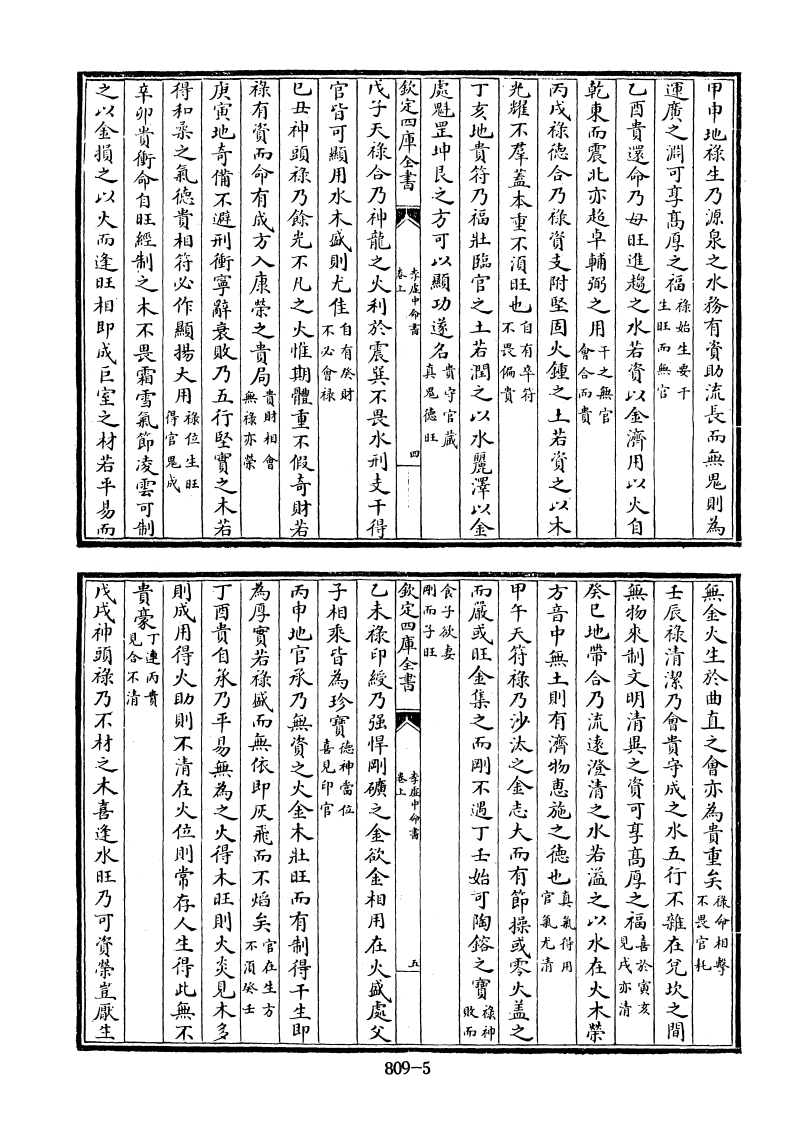 甲申地祿生乃源泉之水務有資助流長而無鬼則為
運廣之淵可享髙厚之福祿始生要干生旺而無官
乙酉貴還命乃母旺進趨之水若資以金濟用以火自
乾東而震北亦超卓輔弼之用干之無官會合而貴
丙戌祿德合乃祿資支附堅固火鍾之土若資之以木
光耀不羣蓋本重不湏旺也自有卒符不畏偏貴
丁亥地貴符乃福壯臨官之土若潤之以水麗澤以金
處魁罡坤艮之方可以顯功遂名貴守官藏真鬼德旺
欽定四庫全書
李虛中命書
卷上
四
戊子天祿合乃神龍之火利於震巽不畏水刑支干得
官皆可顯用水木盛則尤佳自有癸財不必會祿
已丑神頭祿乃餘光不凡之火惟期體重不假奇財若
祿有資而命有成方入康榮之貴局貴財相會無祿亦榮
庚寅地奇備不避刑衝寧辭衰敗乃五行堅實之木若
得和柔之氣德貴相符必作顯揚大用祿位生旺得官鬼成
辛卯貴衝命自旺經制之木不畏霜雪氣節凌雲可制
之以金損之以火而逢旺相即成巨室之材若平易而
無金火生於曲直之會亦為貴重矣祿命相擊不畏官耗
壬辰祿清潔乃會貴守成之水五行不雜在兌坎之間
無物來制文明清異之資可享髙厚之福喜於寅亥見戌亦清
癸巳地帶合乃流遠澄清之水若溢之以水在火木榮
方音中無土則有濟物惠施之德也真氣得用官氣尤清
甲午天符祿乃沙汰之金志大而有節操或零火盖之
而嚴或旺金集之而剛不遇丁壬始可陶鎔之寶祿神敗而
食子欲妻剛而子旺
欽定四庫全書
李虛中命書
卷上
五
乙未祿印綬乃强悍剛礦之金欲金相用在火盛處父
子相乘皆為珍寶德神當位喜見印官
丙申地官承乃無資之火金木壯旺而有制得干生即
為厚實若祿盛而無依即灰飛而不焰矣官在生方不湏癸壬
丁酉貴自承乃平易無為之火得木旺則火炎見木多
則成用得火助則不清在火位則常存人生得此無不
貴豪丁連丙貴見合不清
戊戌神頭祿乃不材之木喜逢水旺乃可資榮豈厭生
809-5